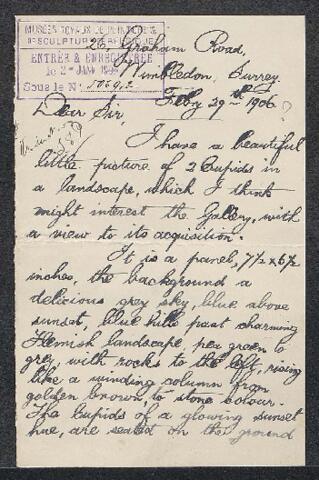 MUSÉES ROYAUX DE PEINTURE
ET SCULPTURE DE BELGIQUE
ENTRÉE & ENREGISTRÉE
le 2 JANV
Sous le N° 5069,2
26, Graham Road,
Wimbledon, Surrey
Feby 29th 1906 ?
Dear Sir,
I have a beautiful
little picture of 2 Cupids in
a landscape, which I think
might interest the Gallery, with
a view to its acquisition.
It is a panel, 7 1/2 x 6 1/2
inches, the background a
delicious grey sky, blue above
sunset, blue hills past charming
Flemish landscape, pea green to
grey, with rocks to the left, rising
like a winding column from
golden brown to stone colour.
The Cupids of a glowing sunset
hue, are seated on the ground